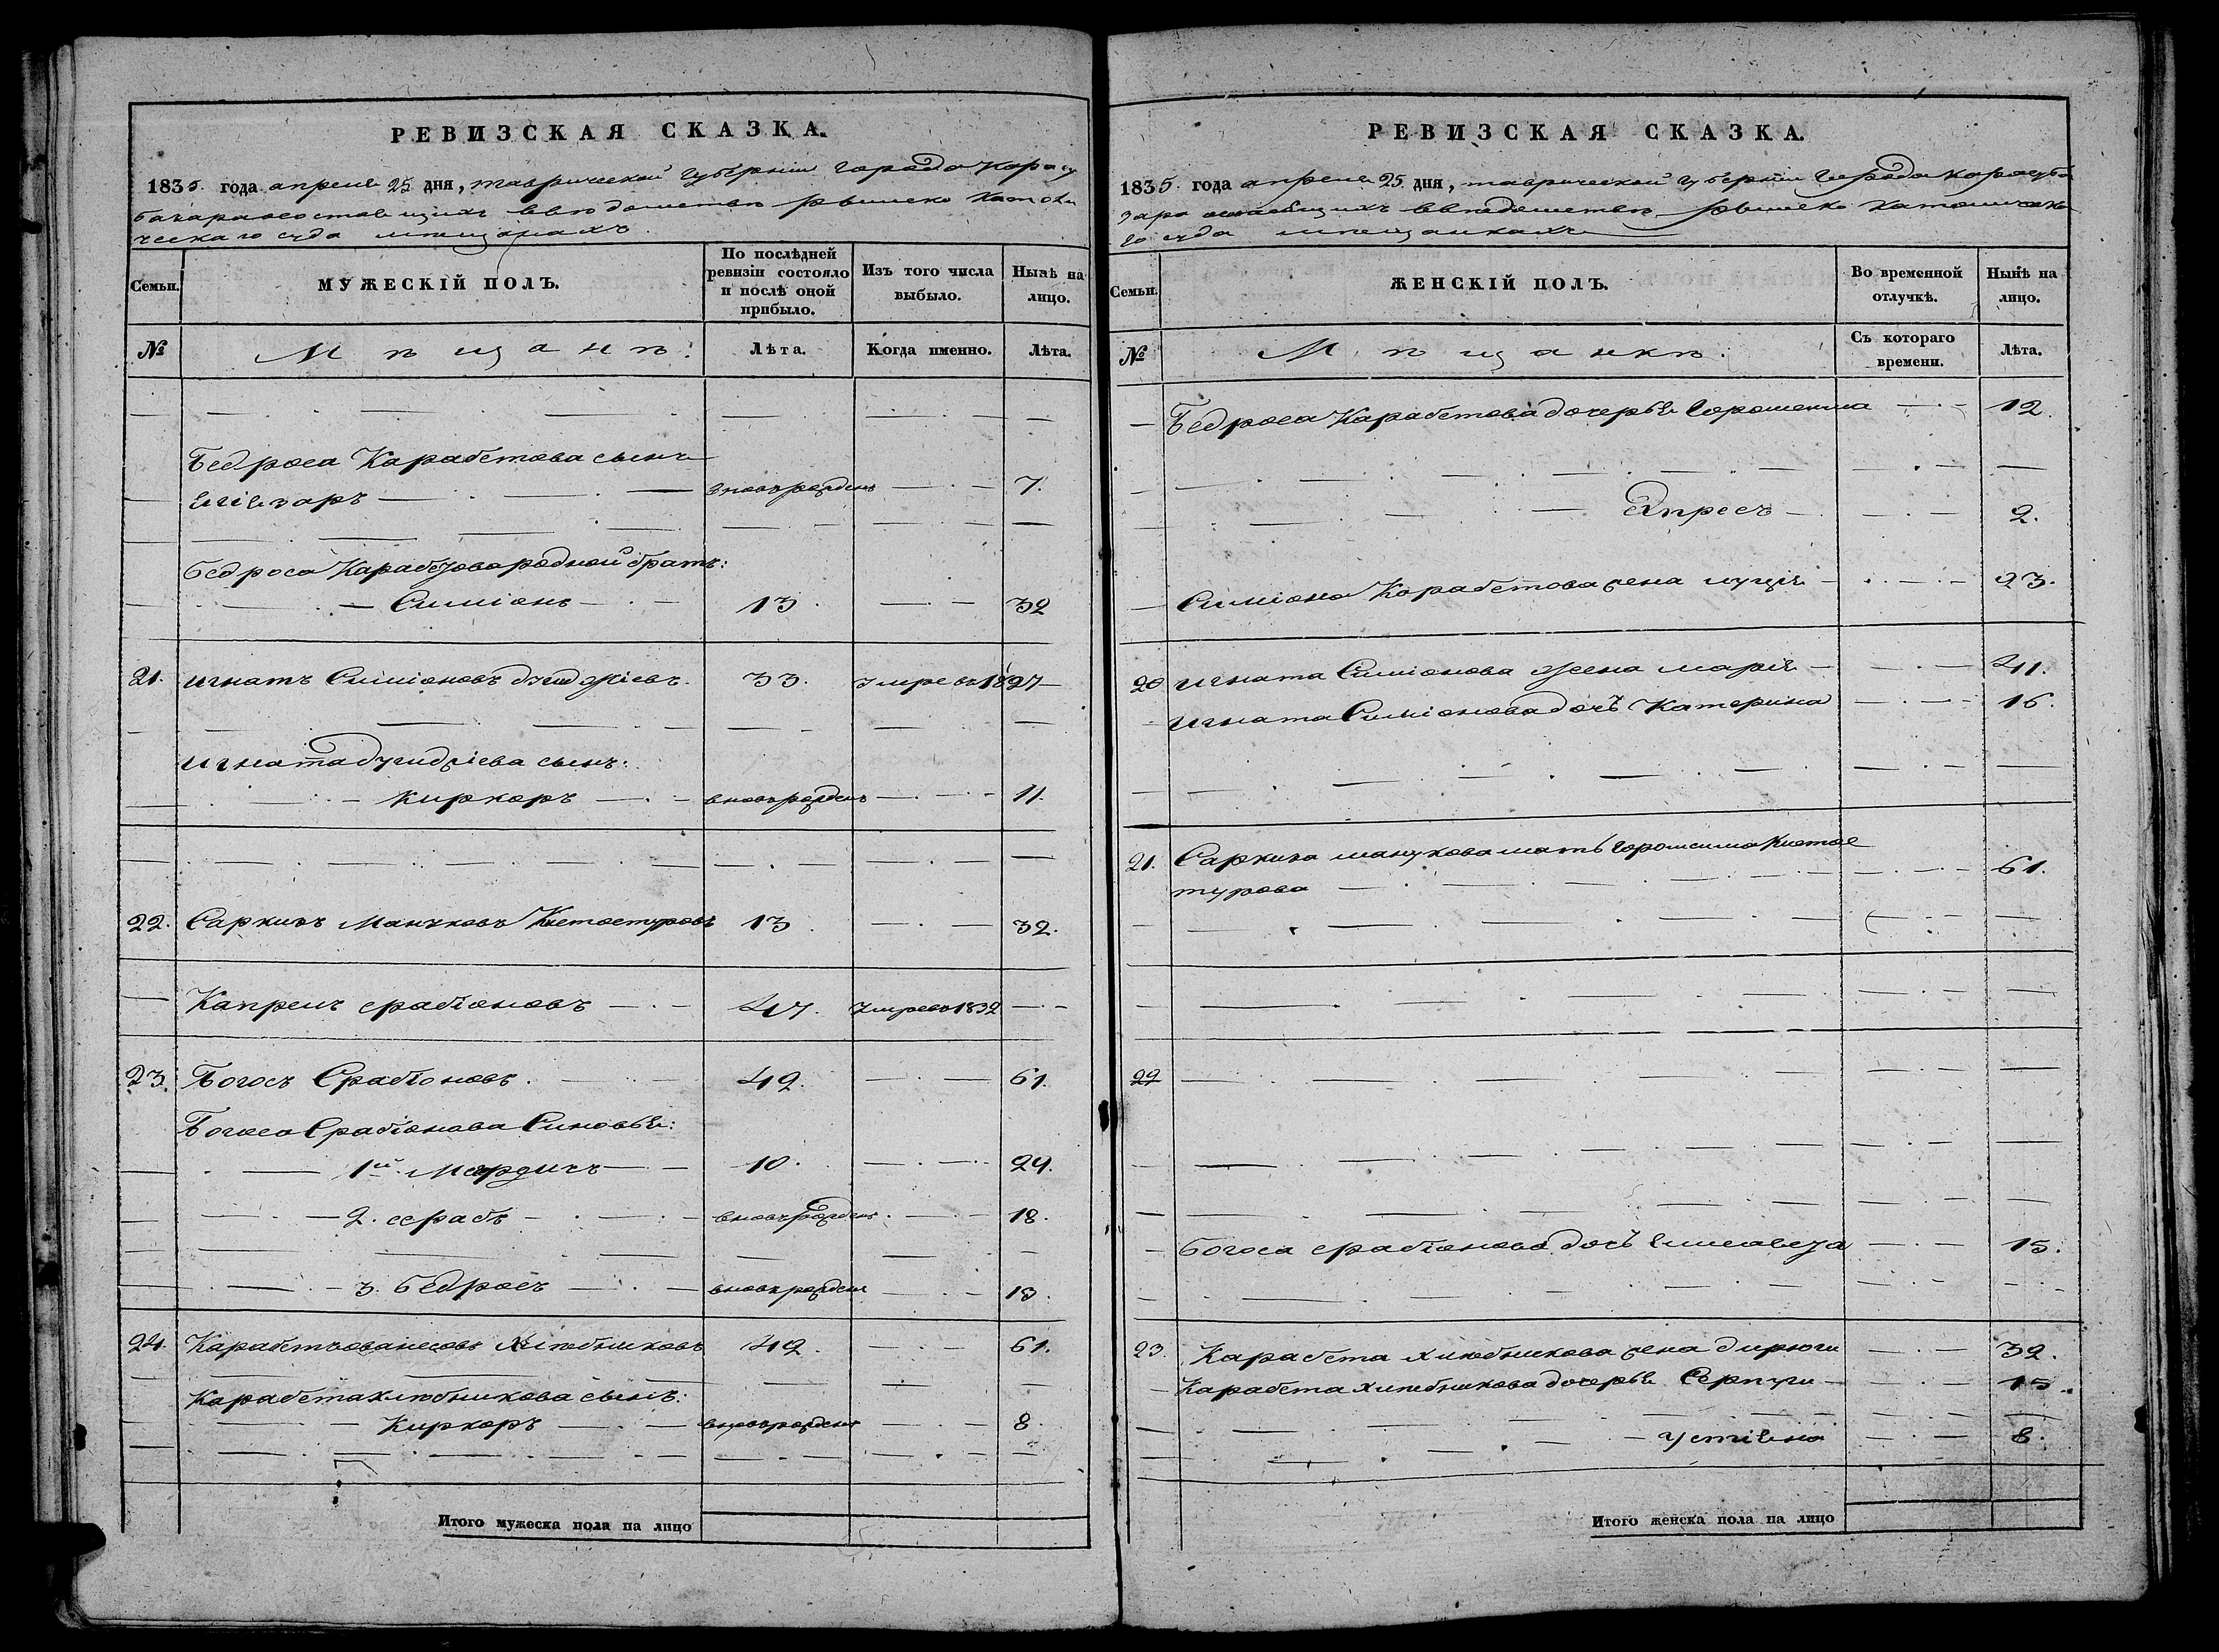 РЕВИЗСКАЯ СКАЗКА.
1835. года апреля 25 дня, таврической губернии города Карасу
базара состоящихъ в ведомстве римско Католи
ческаго суда мещанахъ.
Семьи. МУЖЕСКІЙ ПОЛЪ. По послѣдней ревизіи состояло и послѣ оной прибыло. Изъ того числа выбыло. Нынѣ на лицо.
№ Мѣщане: Лѣта. Когда именно. Лѣта.
Бедроса Карабетова сынъ
вновь рожденъ 7.
Бедроса Карабетова родной братъ:
Симіонъ 13. 32
21. Игнатъ Симіоновъ 33. умре въ 1827
Игната сынъ:
Киркоръ вновь рожденъ 11.
22. Саркизъ Мануковъ 13. 32.
Капрелъ Срабіоновъ 47. умре въ 1832
23. Богосъ Срабіоновъ. 42. 61.
Богоса Срабіонова Синовья:
1й Мардиъ 10. 29.
2. серабъ вновь рожденъ 18.
3. Бедросъ вновь рожденъ 13.
24. Карабетъ ованесовъ Хлебниковъ 42. 61.
Карабета хлебникова сынъ:
Киркоръ вновь рожденъ 8.
Итого мужеска пола на лицо
РЕВИЗСКАЯ СКАЗКА.
1835. года апреля 25. дня, таврической губерніи города Карасуба
зара состоящихъ в ведомстве римско католическа
го суда мещанкахъ
Семьи. ЖЕНСКІЙ ПОЛЪ. Во временной отлучкѣ. Нынѣ на лицо.
№ Мѣщанкѣ. Съ котораго времени. Лѣта.
Бедроса Карабетова дочерья 12.
Япресъ 2.
Симіона Карабетова жена луція 23.
20 Игната Симіонова жена марія 41.
Игната Симіонова дочь Катерина 16.
21. Саркиза манукова мать
турова 61.
22
Богоса срабіонова дочь Елисавета 15.
23. Карабета хлебникова жена дирюги 32.
Карабета хлебникова дочерья Серпуги 15.
устіена 8.
Итого женска пола на лицо